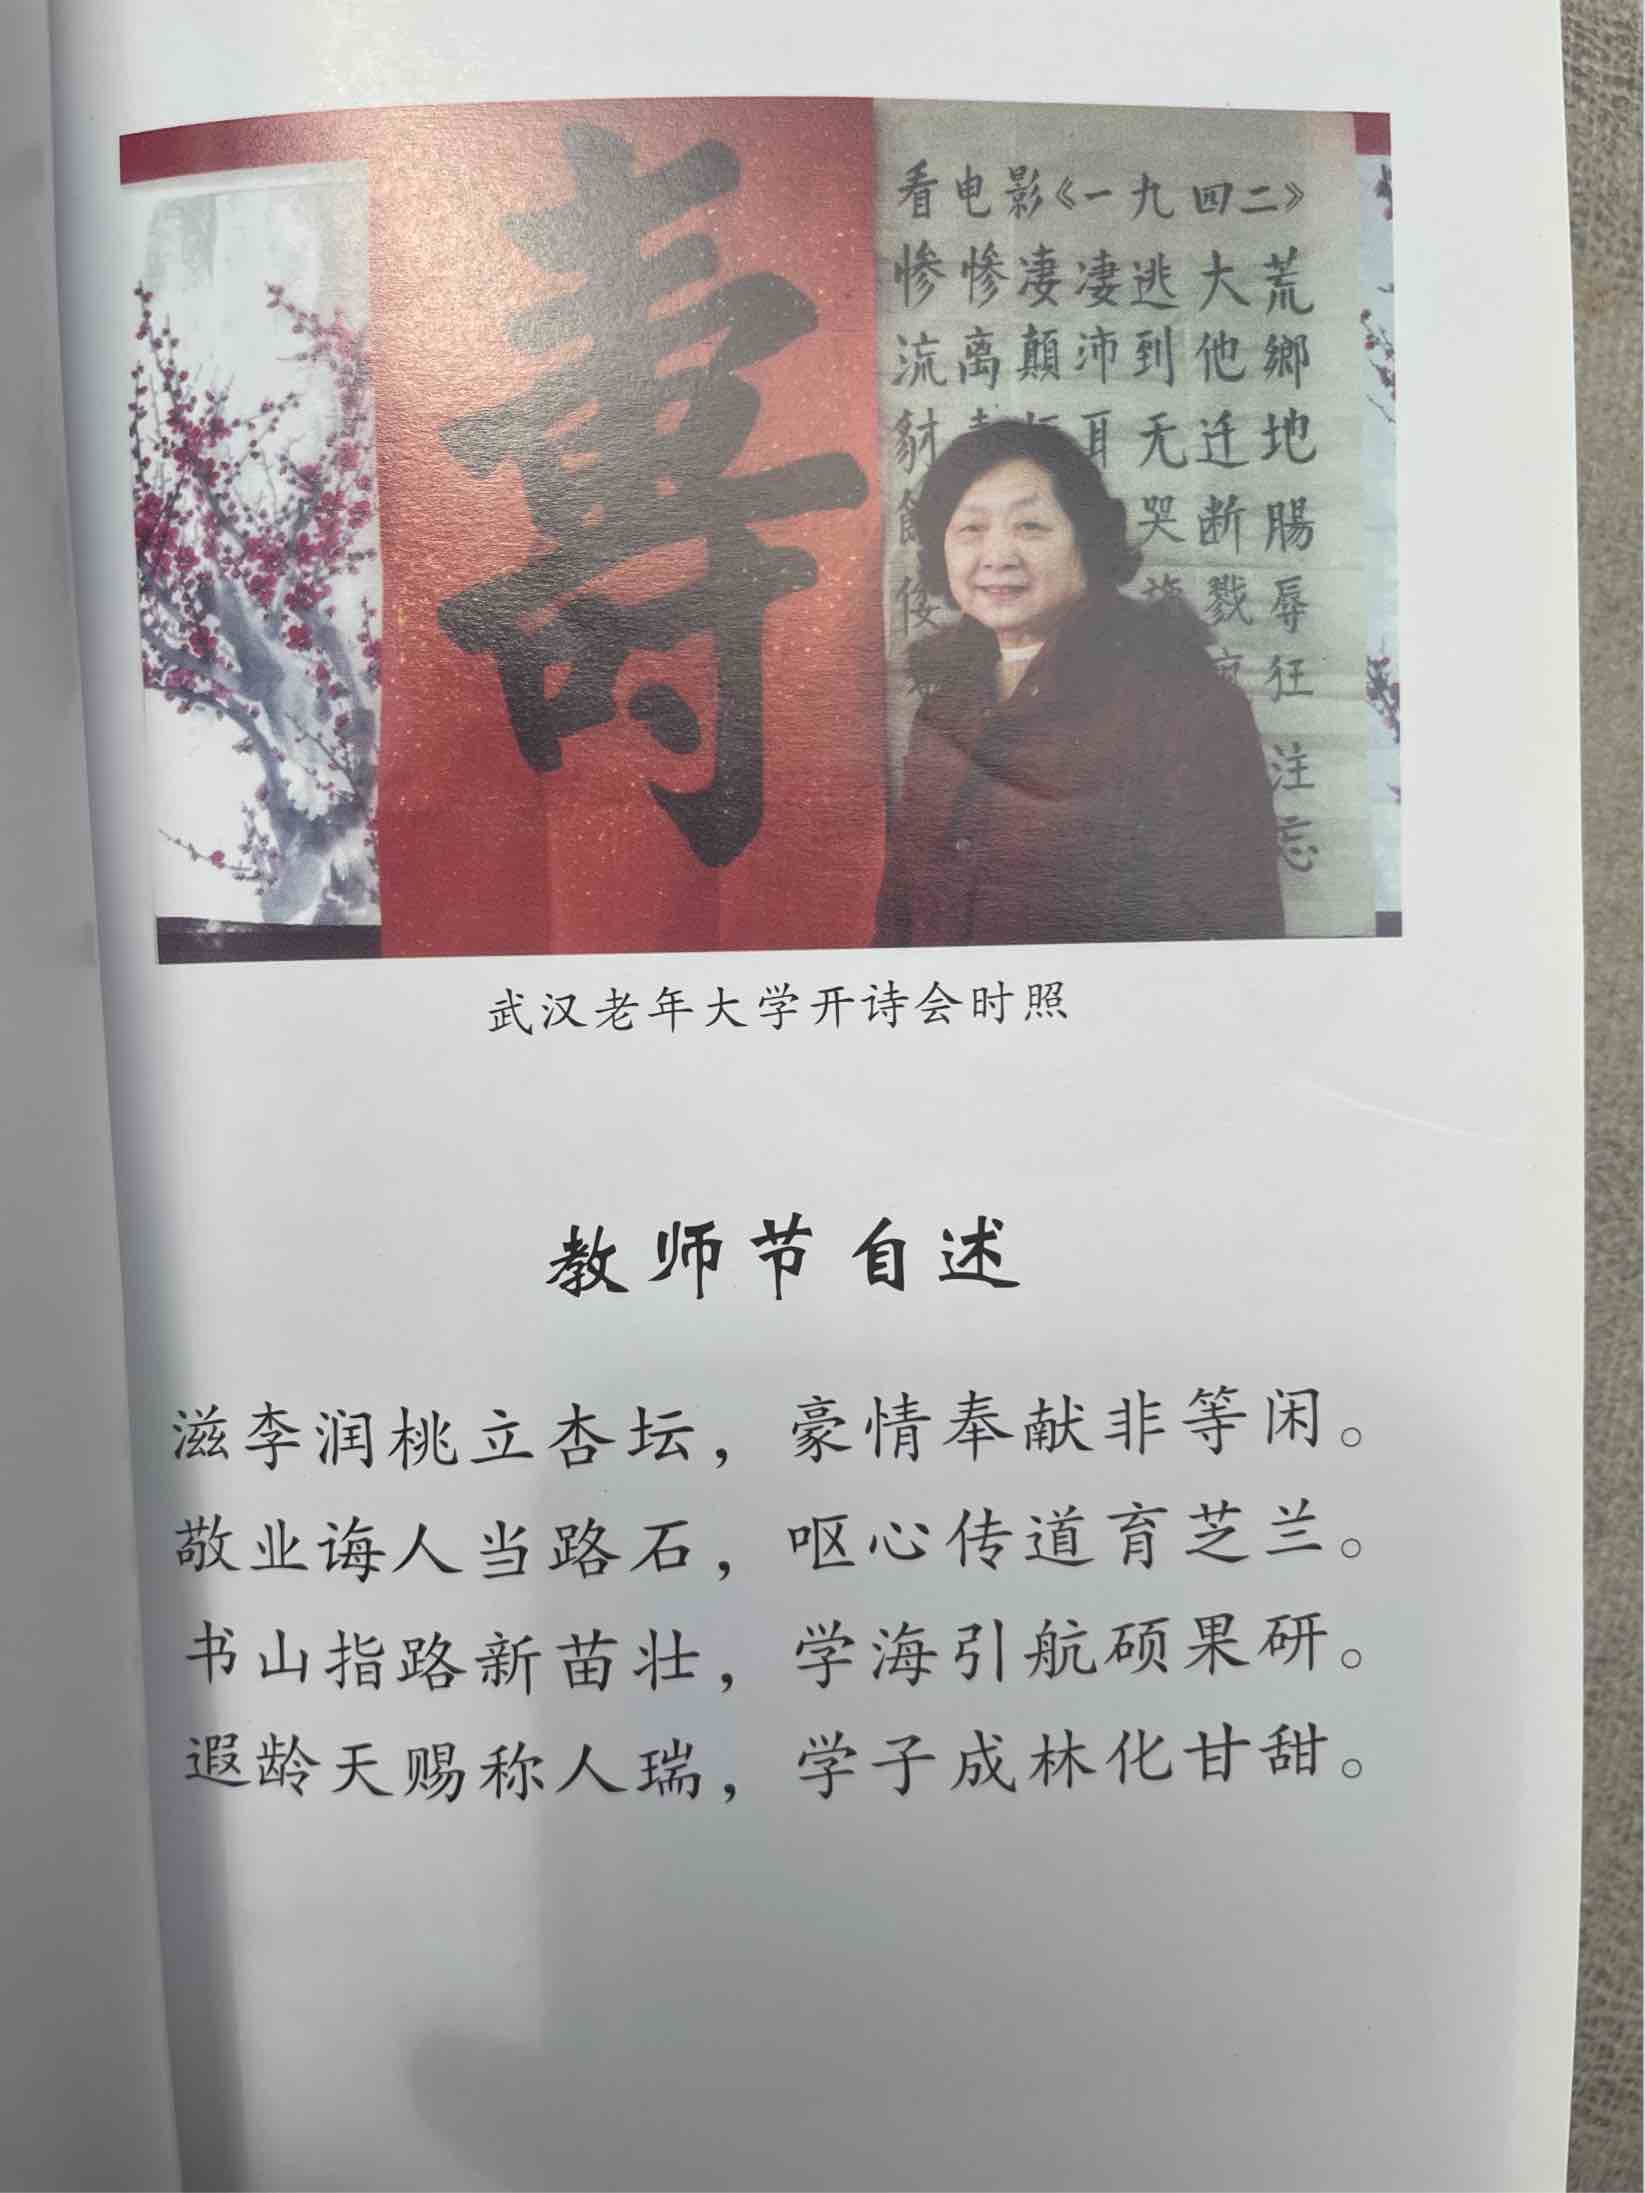 寿
看电影《一九四二》
惨惨凄凄逃大荒
流离顛沛到他鄉
豺 耳无迁地
哭断腸
倭 戮辱
狂
注
忘
武汉老年大学开诗会时照
教师节自述
滋李润桃立杏坛，豪情奉献非等闲。
敬业诲人当路石，呕心传道育芝兰。
书山指路新苗壮，学海引航硕果研。
遐龄天赐称人瑞，学子成林化甘甜。